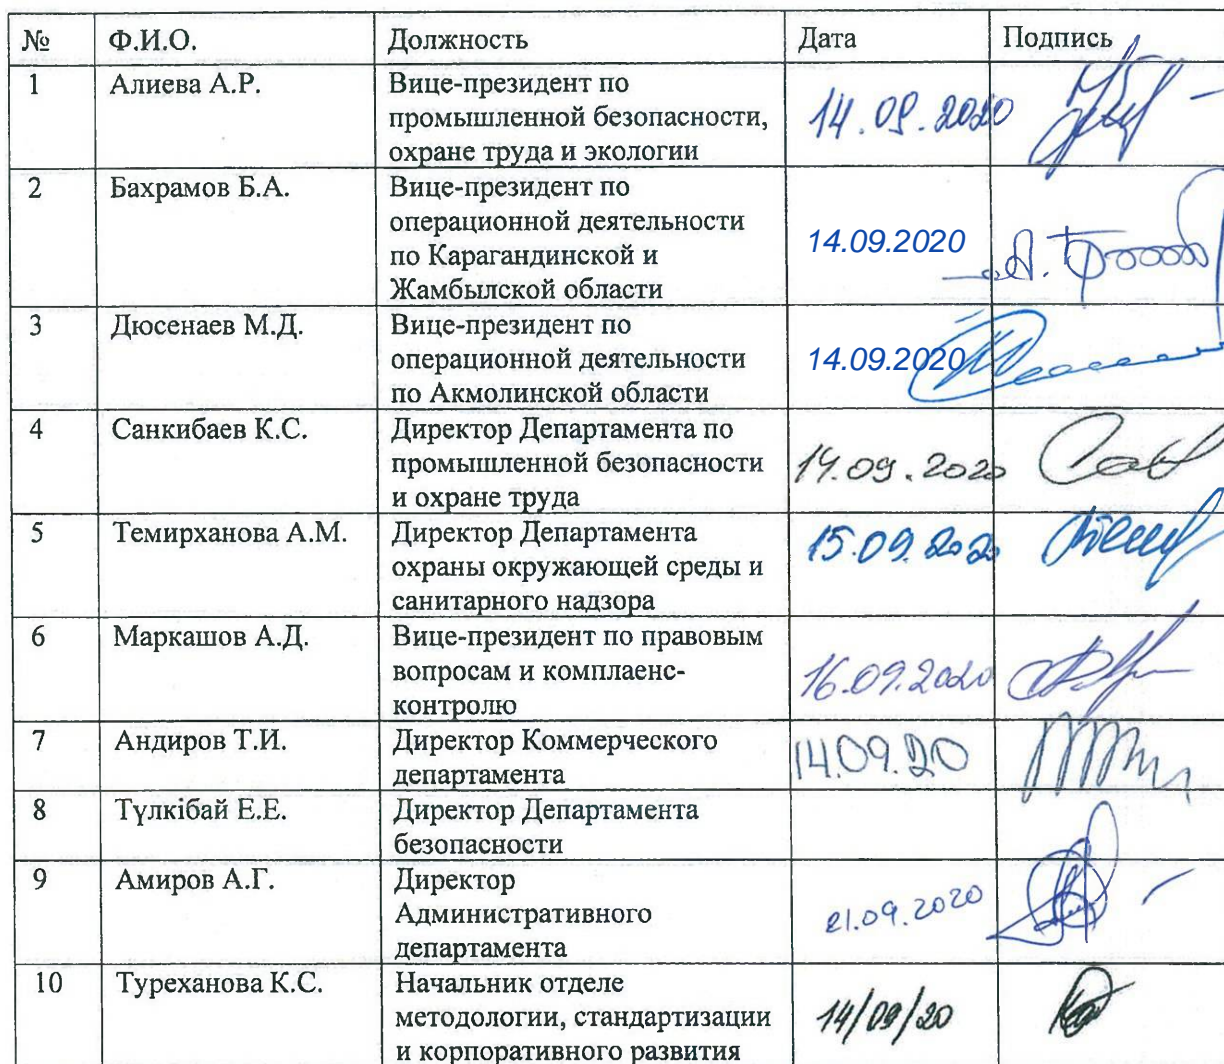 № Ф.И.О. Должность Дата Подпись
1 Алиева А.Р. Вице-президент по
промышленной безопасности, 14.09.2020
охране труда и экологии
2 Бахрамов Б.А. Вице-президент по
операционной деятельности
по Карагандинской и 14.09.2020
Жамбылской области
3 Дюсенаев М.Д. Вице-президент по
операционной деятельности 14.09.2020
по Акмолинской области
4 Санкибаев К.С. Директор Департамента по
промышленной безопасности 14.09.2020
и охране труда
5 Темирханова А.М. Директор Департамента 15.09.2020
охраны окружающей среды и
санитарного надзора
6 Маркашов А.Д. Вице-президент по правовым
вопросам и комплаенс- 16.09.2020
контролю
7 Андиров Т.И. Директор Коммерческого 14.09.20
департамента
8 Түлкібай Е.Е. Директор Департамента
безопасности
9 Амиров А.Г. Директор
Административного 21.09.2020
департамента
10 Туреханова К.С. Начальник отделе
методологии, стандартизации 14/09/20
и корпоративного развития